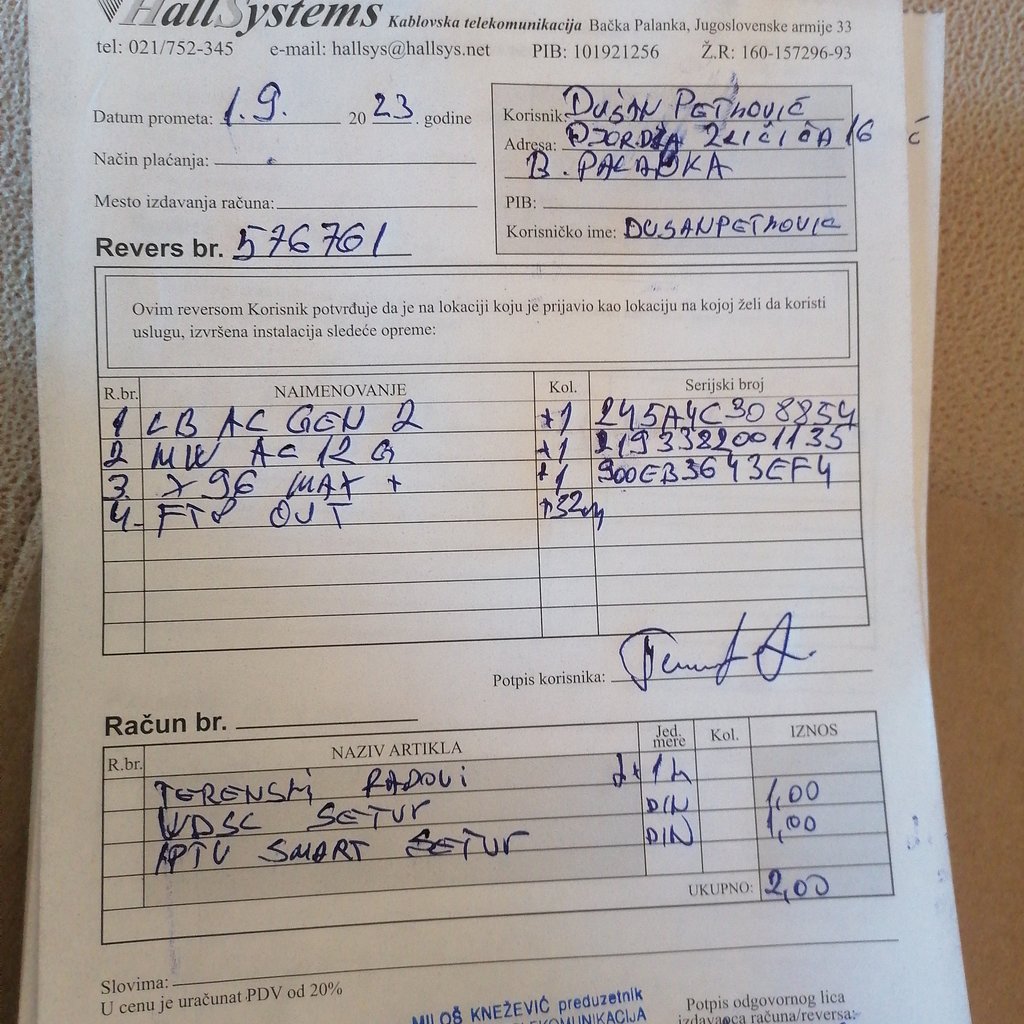 HallSystems Kablovska telekomunikacija Bačka Palanka, Jugoslovenske armije 33
tel: 021/752-345 e-mail: hallsys@hallsys.net PIB: 101921256 Ž.R: 160-157296-93
Datum prometa: 1.9. 2023. godine
Način plaćanja:
Mesto izdavanja računa:
Revers br. 576761
Korisnik: DUŠAN PETROVIĆ
Adresa: DJORDJA ZLIČIĆA 16
B. PALANKA
PIB:
Korisničko ime: DUSANPETROVIC
Ovim reversom Korisnik potvrđuje da je na lokaciji koju je prijavio kao lokaciju na kojoj želi da koristi
uslugu, izvršena instalacija sledeće opreme:
R.br. NAIMENOVANJE Kol. Serijski broj
1 LB AC GEN 2 *1 245A4C308854
2 MW AC 12 G *1 2193382001135
3. X96 MAX + *1 900EB3643EF4
4. FTP OUT *32m
Potpis korisnika:
Račun br.
R.br. NAZIV ARTIKLA Jed. mere Kol. IZNOS
TERENSKI RADOVI 1h
WDSL SETUP DIN 1,00
IPTV SMART SETUP DIN 1,00
UKUPNO: 2,00
Slovima:
U cenu je uračunat PDV od 20%
MILOŠ KNEŽEVIĆ preduzetnik
TELEKOMUNIKACIJA
Potpis odgovornog lica
izdavaoca računa/reversa: